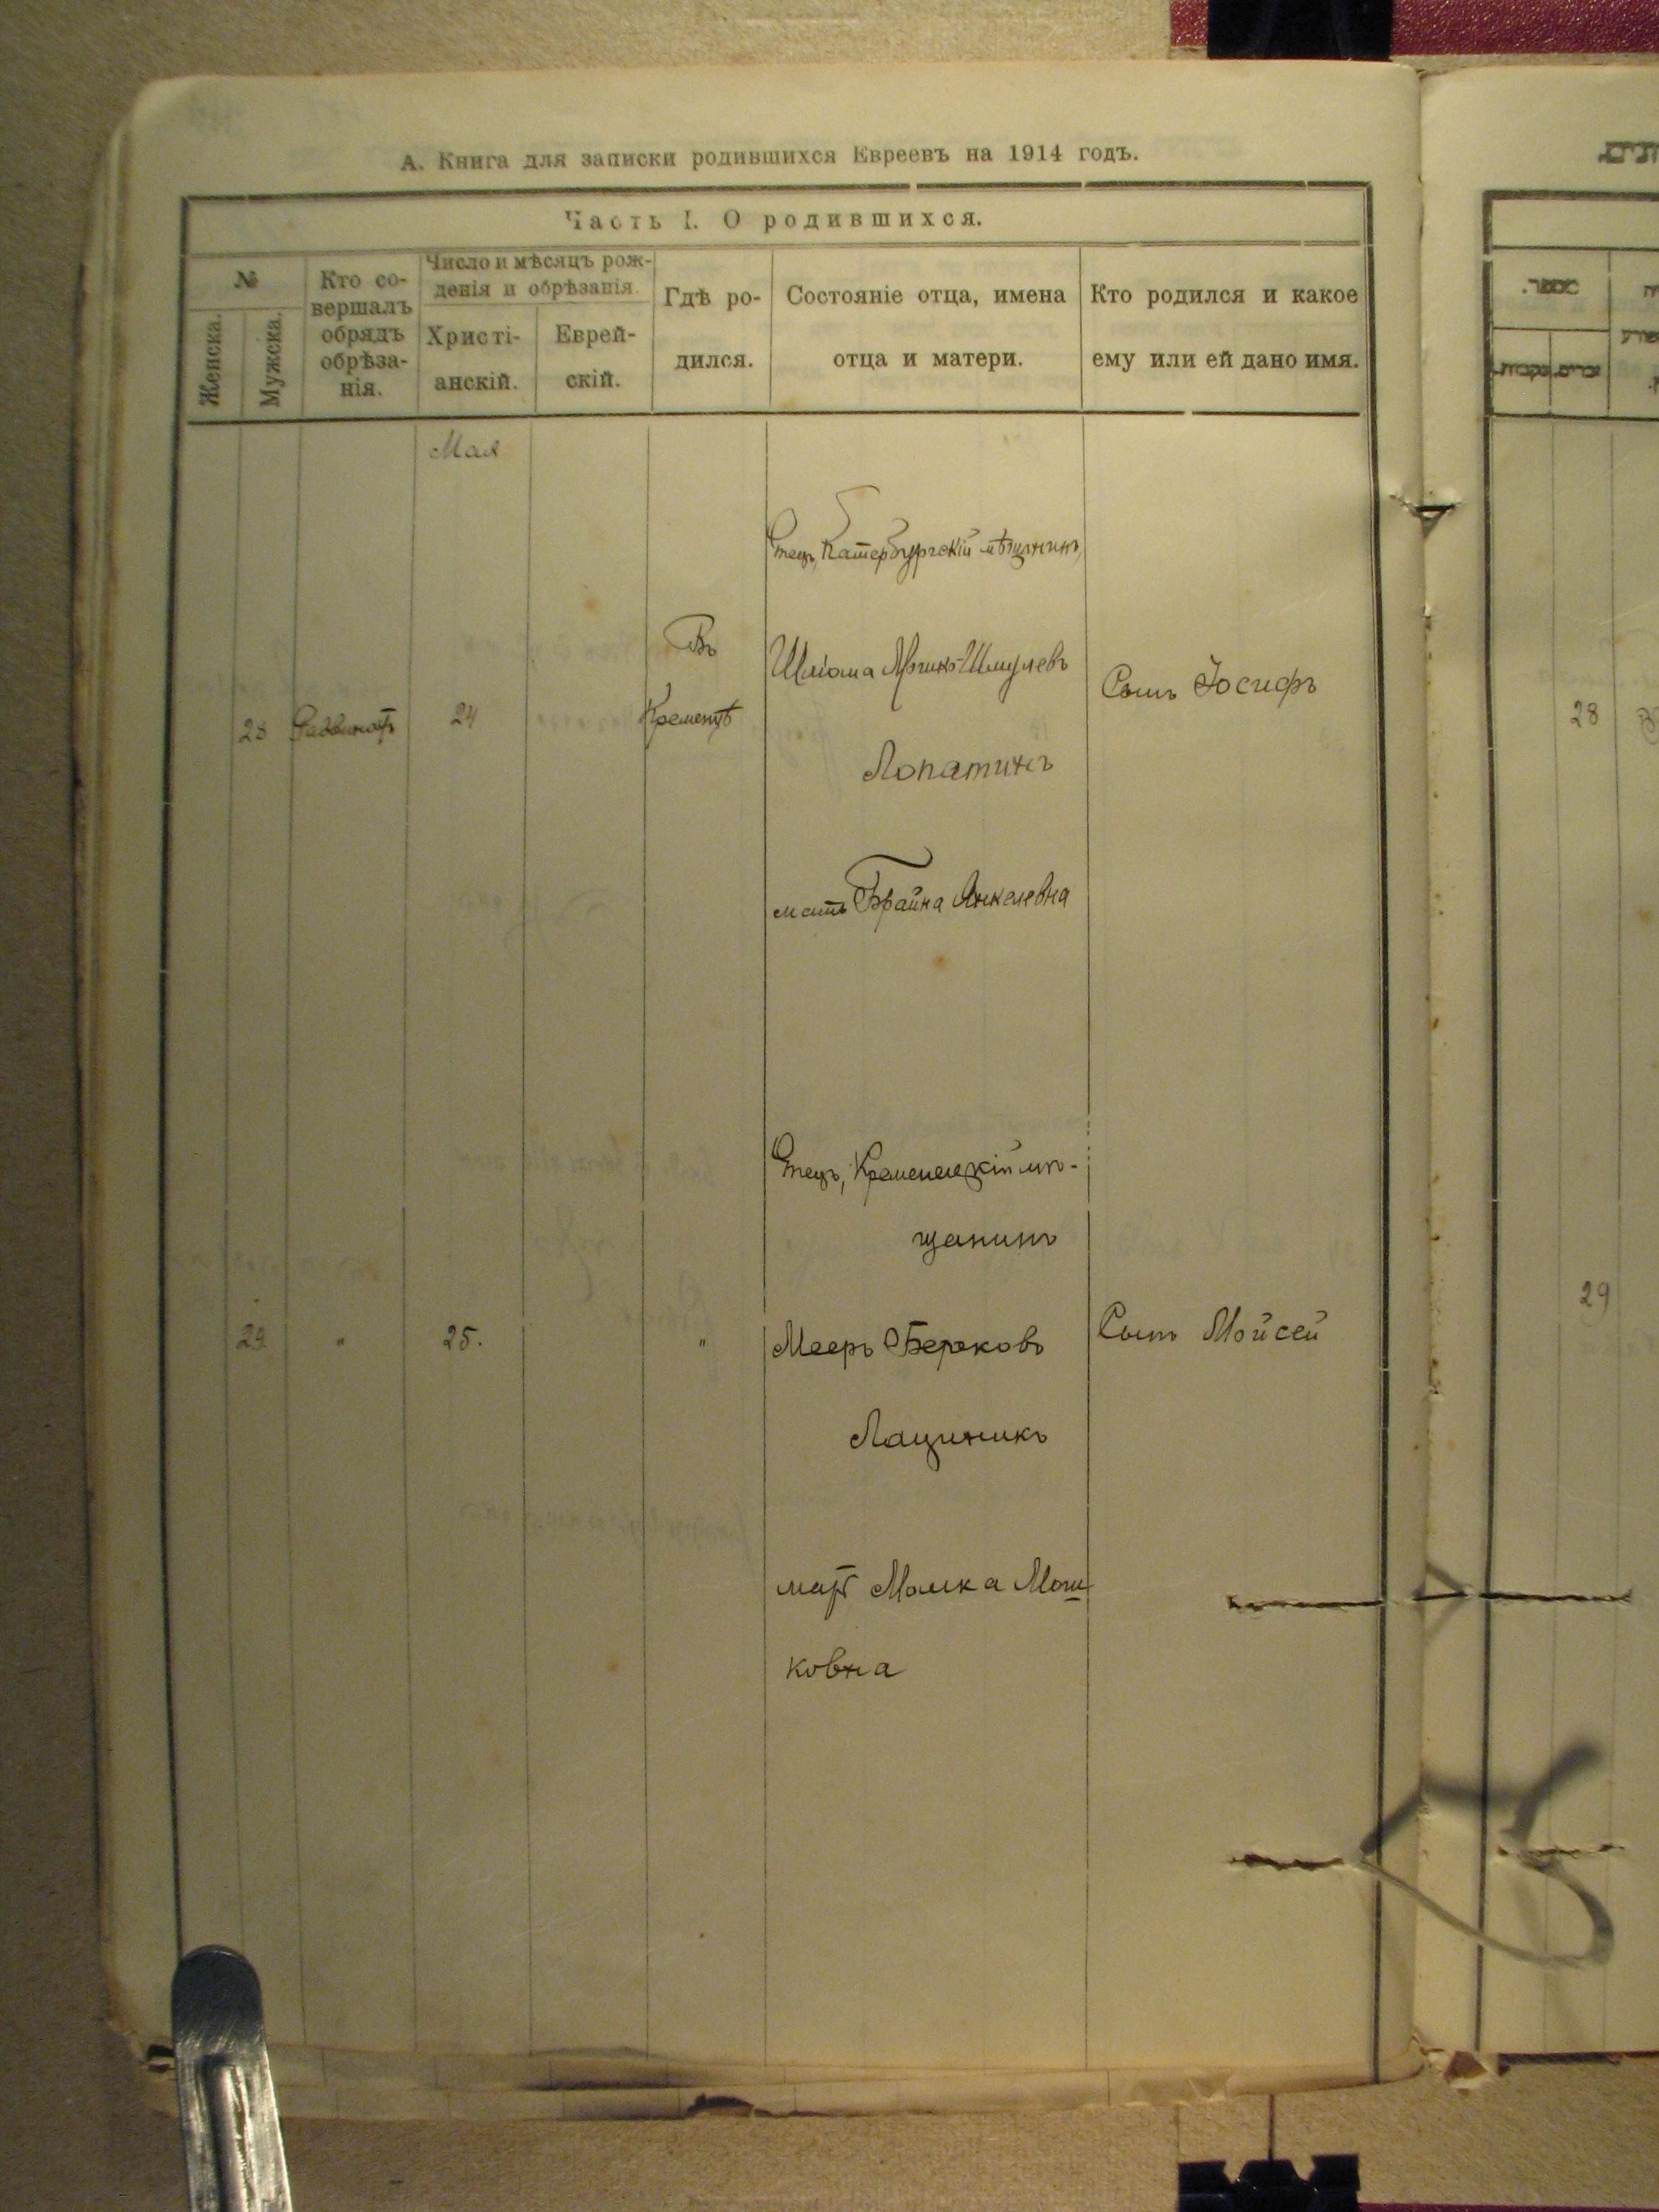 А. Книга для записки родившихся Евреевъ на 1914 годъ.
Часть I. О родившихся.
№
Женска.
Мужска.
Кто со-
вершалъ
обрядъ
обрѣза-
нія.
Число и мѣсяцъ рож-
денія и обрѣзанія.
Христі-
анскій.
Еврей-
скій.
Гдѣ ро-
дился.
Состояніе отца, имена
отца и матери.
Кто родился и какое
ему или ей дано имя.
Мая
28
24
Въ
Кременцѣ
Отецъ, Катербургскій мѣщанинъ
Шліома Мошко-Шмулевъ
Лопатинъ
мать Брайна Янкелевна
Сынъ Іосифъ
29
"
25.
"
Отецъ, Кременецкій мѣ-
щанинъ
Мееръ Берковъ
Лациникъ
мать Малка Мош
ковна
Сынъ Мойсей
28
29